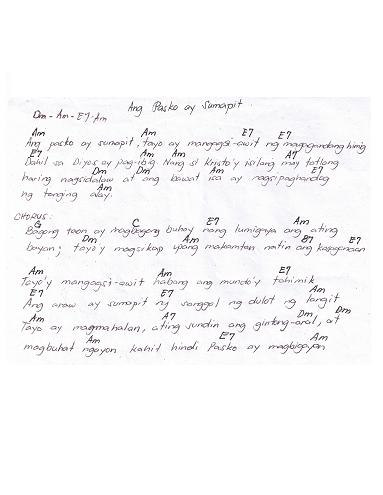 Ang Pasko ay Sumapit
Dm - Am - E7 - Am
Am Am E7 E7
Ang pasko ay sumapit, tayo ay mangagsi-awit ng magagandang himig
E7 Am Am A7
Dahil sa Diyos ay pag-ibig. Nang si Kristo'y isilang may tatlong
Dm Dm Am E7
haring nagsidalaw at ang bawat isa ay nagsipaghandog
Am
ng tanging alay.
CHORUS:
G C E7 Am
Bagong taon ay magbagong buhay nang lumigaya ang ating
Dm Am B7 E7
bayan; tayo'y magsikap upang makamtan natin ang kasaganaan
Am Am E7
Tayo'y mangagsi-awit habang ang mundo'y tahimik
E7 E7 Am
Ang araw ay sumapit ng sanggol ng dulot ng langit
Am A7 Dm Dm
Tayo ay magmahalan, ating sundin ang gintong-aral, at
Am E7 Am
magbuhat ngayon kahit hindi Pasko ay magbigayan